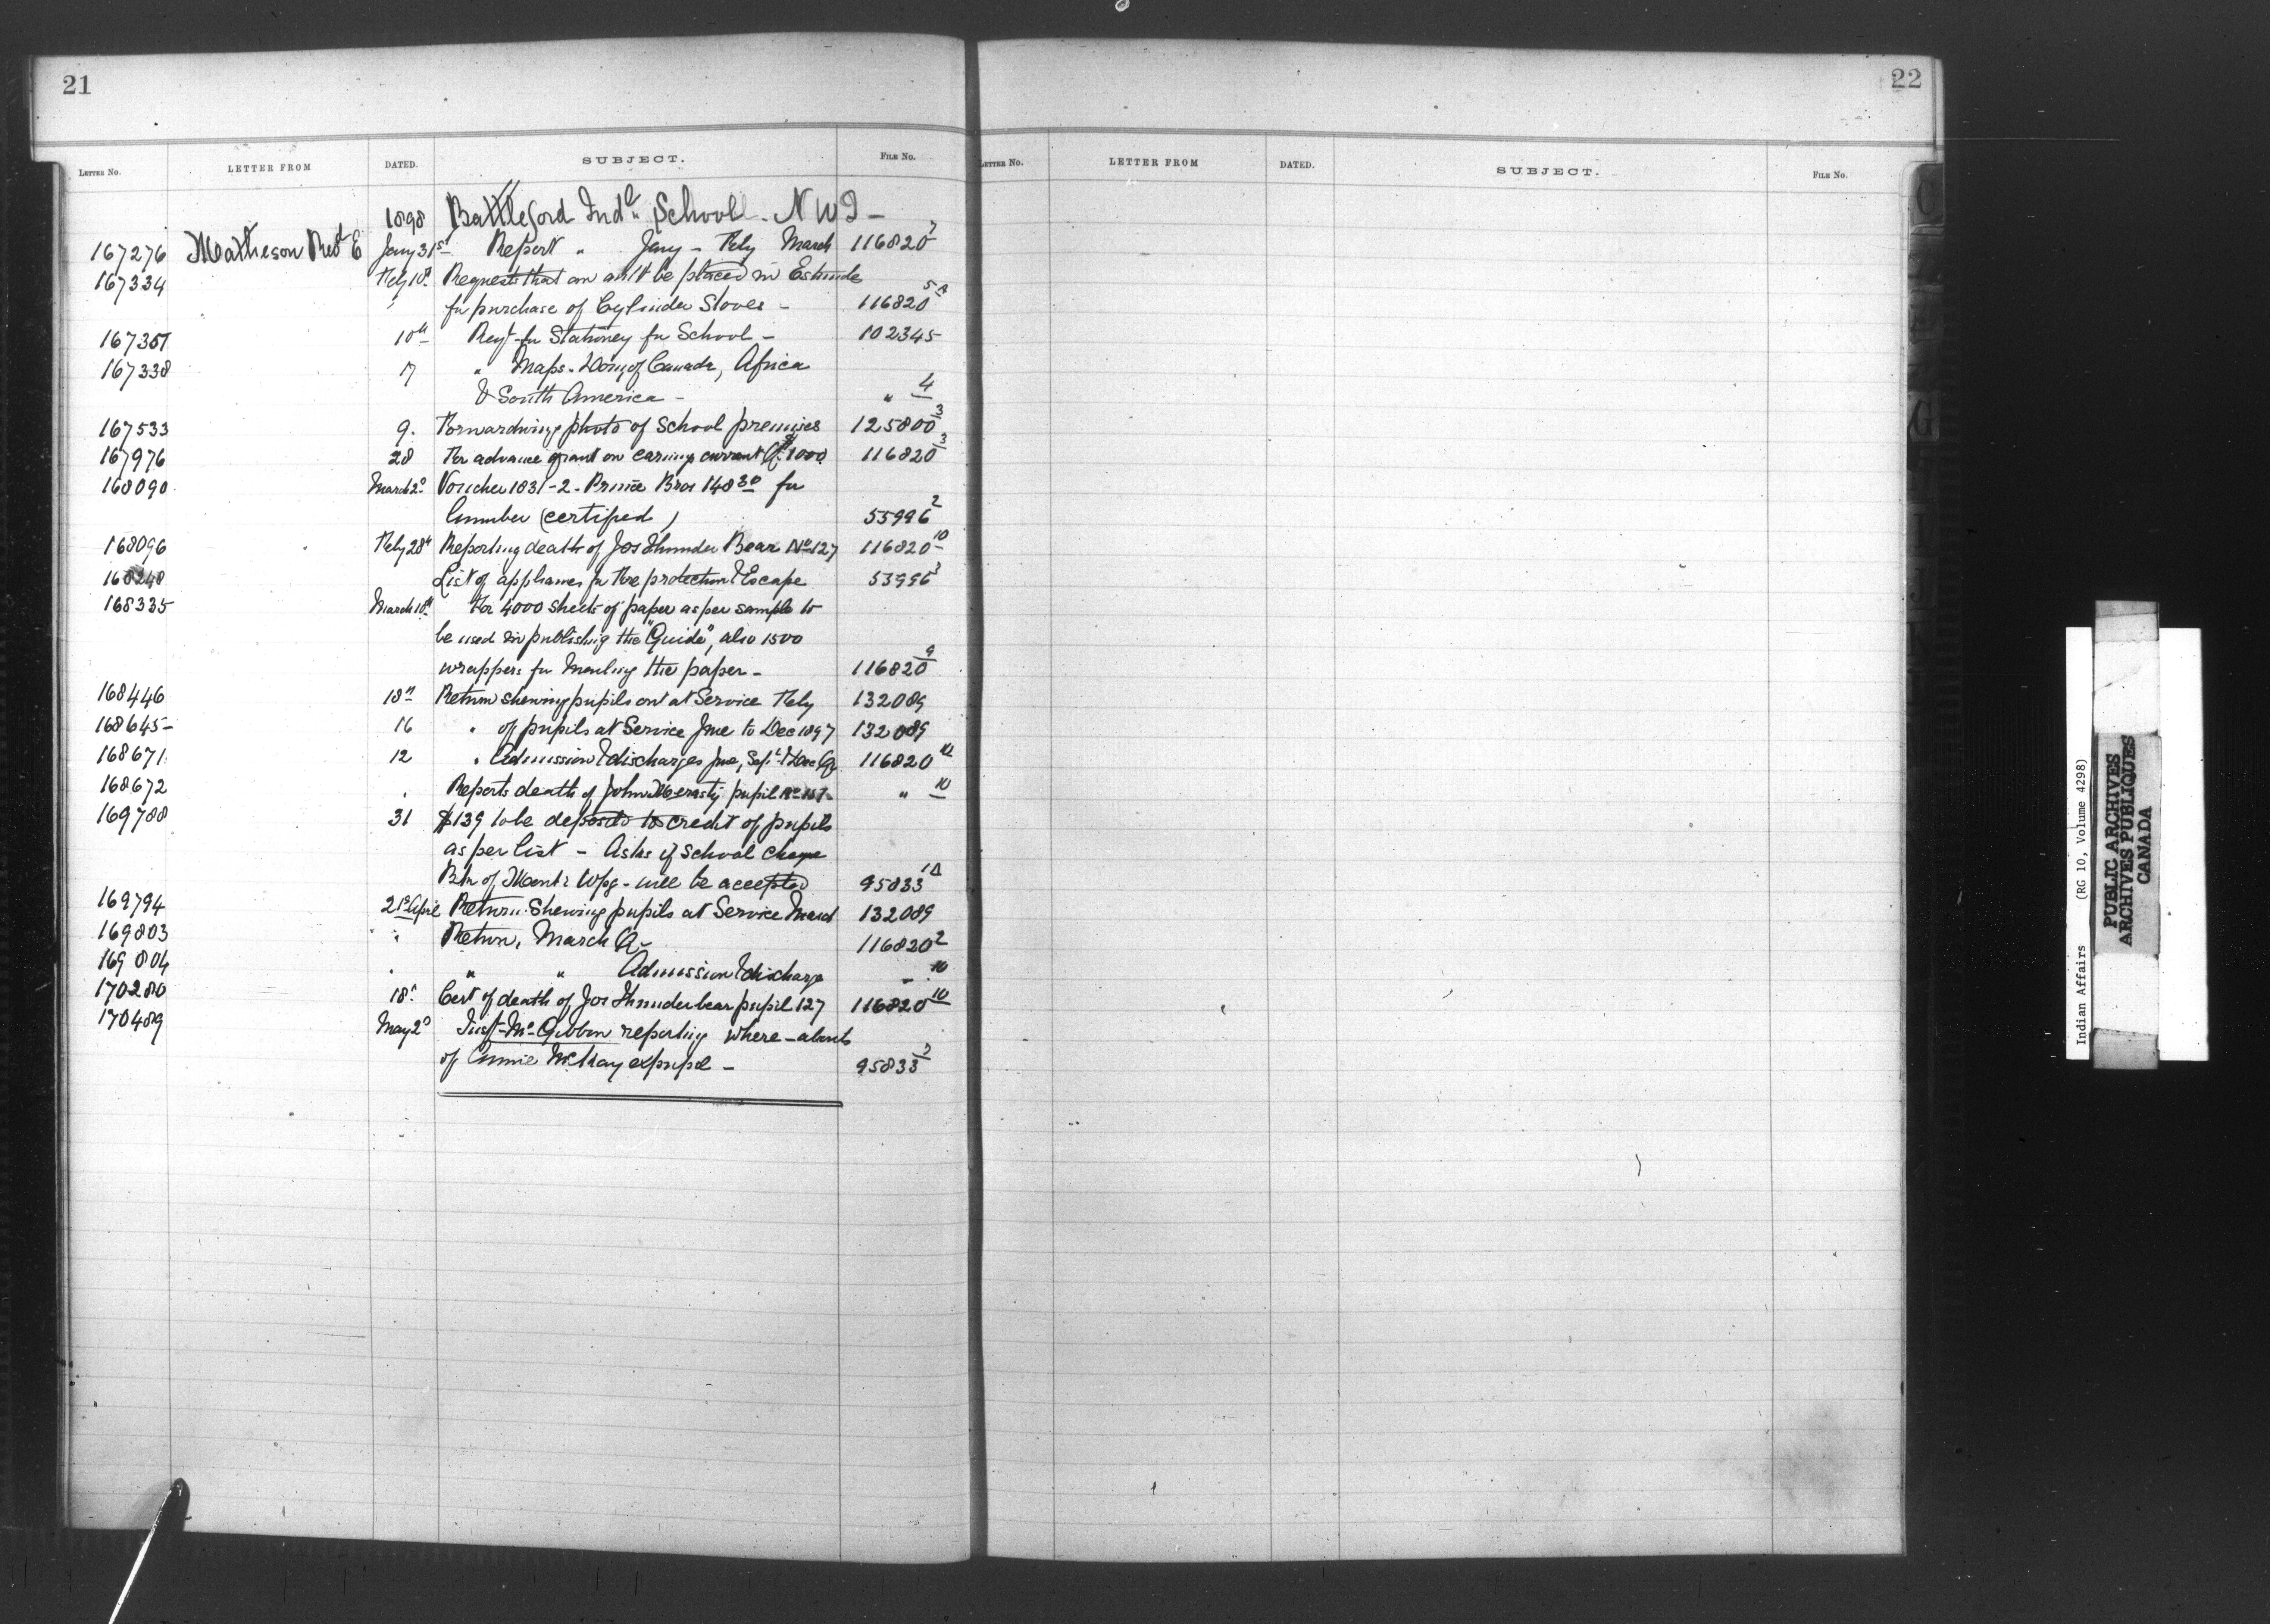 21
22
LETTER No. LETTER FROM DATED. SUBJECT. FILE No.
LETTER No. LETTER FROM DATED. SUBJECT. FILE No.
1898 Battleford Indl School - N W T -
167276 Matheson Revd E Jany 31st Report " Jany - Feby March 116820
167334 Feby 10th Requests that an amt be placed in Estimate
for purchase of Cylinder Stoves - 116820 5A
167357 10th Reqt for Stationery for School - 102345
167338 7 " Maps - Domn of Canada, Africa
& South America - " 4
167533 9. Forwarding photo of School premises 125800 3
167976 28 For advance grant on earnings current Qr $1000 116820 3
168090 March 2d Voucher 1831-2 - Prince Bros 148 30 for
Lumber (certified) 55996 2
168096 Feby 28th Reporting death of Jos Thunder Bear No 127 116820 10
168248 List of appliances for Fire protection & Escape 53996 3
168335 March 10th For 4000 sheets of paper as per sample to
be used in publishing the "Guide", also 1500
wrappers for Mailing the paper - 116820 9
168446 18th Return shewing pupils out at Service Feby 132089
168645 16 " of pupils at Service June to Dec 1897 132089
168671 12 " Admission & discharges June, Sept & Dec Qr 116820 10
168672 " Reports death of John pupil No " 10
169788 31 $139 to be deposited to credit of pupils
as per list - Asks if school cheque
Bk of Montl Wpg - will be accepted 95833 1A
169794 2d April Return Shewing pupils at Service March 132089
169803 " Return, March Qr - 116820 2
169804 " " " Admission & discharge " 10
170280 18th Cert of death of Jos Thunderbear pupil 127 116820 10
170489 May 2d Inspr McGibbon reporting where-abouts
of Annie McKay expupil - 95833
Indian Affairs (RG 10, Volume 4298)
PUBLIC ARCHIVES
ARCHIVES PUBLIQUES
CANADA